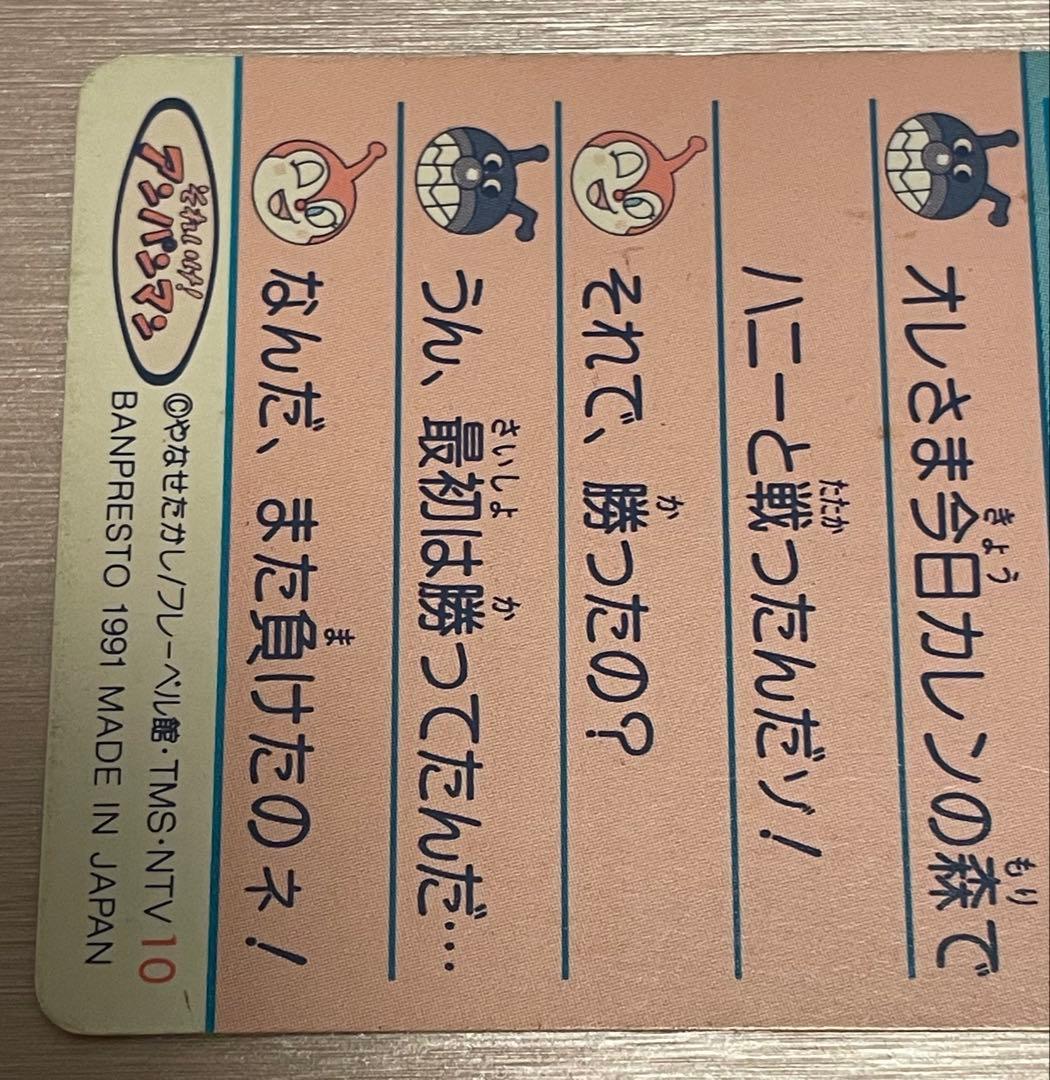 オレさま今日カレンの森で
きょう
もり
ハニーと戦ったんだゾ！
たたか
それで、勝ったの？
か
うん、最初は勝ってたんだ…
さいしょ
か
なんだ、また負けたのネ！
ま
それいけ！
アンパンマン
©やなせたかし/フレーベル館・TMS・NTV 10
BANPRESTO 1991 MADE IN JAPAN